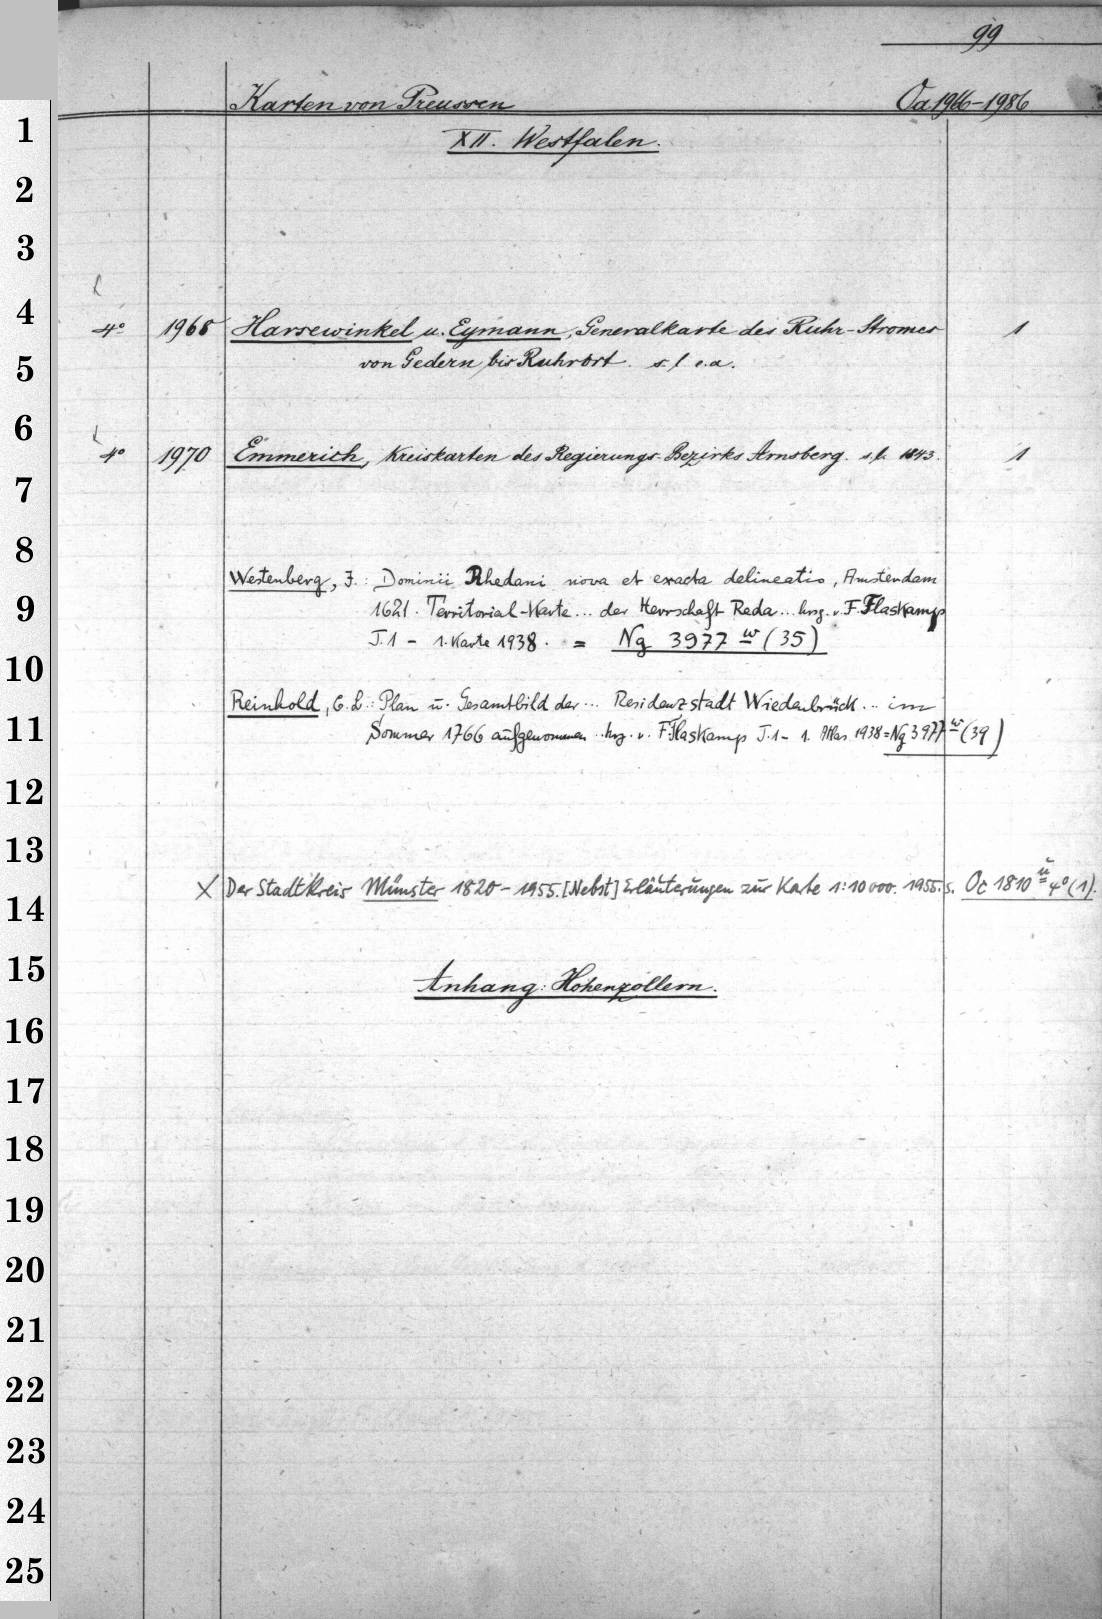 99
Karten von Preussen Oa 1966-1986
1
XII. Westfalen.
2
3
4
4° 1968 Harsewinkel u. Eymann, Generalkarte des Ruhr-Stromes 1
5
von Gedern bis Ruhrort. s. l. e. a.
6
4° 1970 Emmerich, Kreiskarten des Regierungs-Bezirks Arnsberg. s. l. 1843. 1
7
8
Westenberg, J.: Dominii Rhedani nova et exacta delineatio, Amsterdam
9
1621. Territorial-Karte... der Herrschaft Reda... hrsg. v. F. Flaskamp
J. 1 - 1. Karte 1938. = Ng 3977 w (35)
10
Reinhold, C. L.: Plan u. Gesamtbild der... Residenzstadt Wiedenbrück... im
11
Sommer 1766 aufgenommen... hrg. v. F. Flaskamp J. 1 - 1. Atlas. 1938 = Ng 3977 w (39)
12
13
14
X Der Stadtkreis Münster 1820-1955. [Nebst] Erläuterungen zur Karte 1:10000. 1955. s. Oc 1810 ü 4° (1).
15
Anhang: Hohenzollern.
16
17
18
19
20
21
22
23
24
25